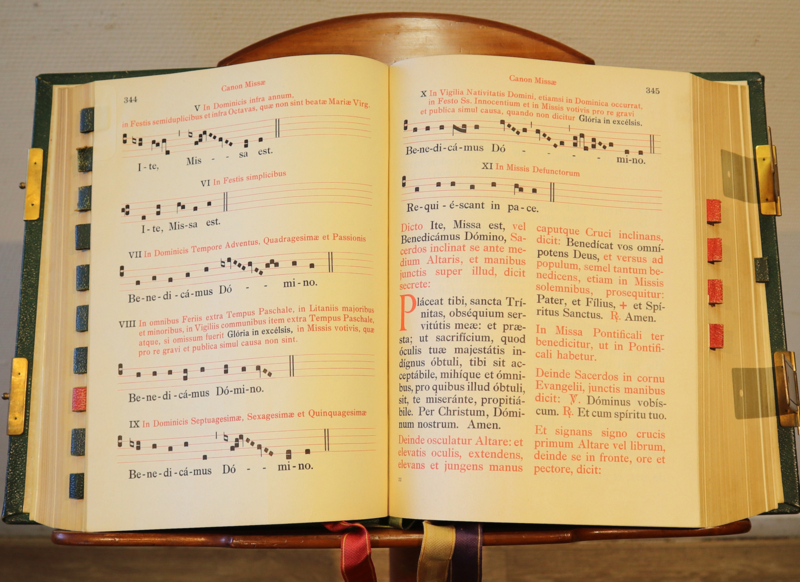 344
Canon Missæ
V In Dominicis infra annum,
in Festis semiduplicibus et infra Octavas, quæ non sint beatæ Mariæ Virg.
I - te, Mis - - sa est.
VI In Festis simplicibus
I - te, Mis-sa est.
VII In Dominicis Tempore Adventus, Quadragesimæ et Passionis
Be - ne - di - cá-mus Dó - - mi - no.
VIII In omnibus Feriis extra Tempus Paschale, in Litaniis majoribus
et minoribus, in Vigiliis communibus item extra Tempus Paschale,
atque, si omissum fuerit Glória in excélsis, in Missis votivis, quæ
pro re gravi et publica simul causa non sint.
Be - ne - di - cá-mus Dó-mi-no.
IX In Dominicis Septuagesimæ, Sexagesimæ et Quinquagesimæ
Be - ne - di - cá-mus Dó - - mi - no.
Canon Missæ
345
X In Vigilia Nativitatis Domini, etiamsi in Dominica occurrat,
in Festo Ss. Innocentium et in Missis votivis pro re gravi
et publica simul causa, quando non dicitur Glória in excélsis.
Be-ne-di-cá-mus Dó - - - - mi-no.
XI In Missis Defunctorum
Re - qui - é-scant in pa - ce.
Dicto Ite, Missa est, vel
Benedicámus Dómino, Sa-
cerdos inclinat se ante me-
dium Altaris, et manibus
junctis super illud, dicit
secrete:
Pláceat tibi, sancta Trí-
nitas, obséquium ser-
vitútis meæ: et præ-
sta; ut sacrifícium, quod
óculis tuæ majestátis in-
dígnus óbtuli, tibi sit ac-
ceptábile, mihíque et ómni-
bus, pro quibus illud óbtuli,
sit, te miseránte, propitiá-
bile. Per Christum, Dómi-
num nostrum. Amen.
Deinde osculatur Altare: et
elevatis oculis, extendens,
elevans et jungens manus
caputque Cruci inclinans,
dicit: Benedícat vos omní-
potens Deus, et versus ad
populum, semel tantum be-
nedicens, etiam in Missis
solemnibus, prosequitur:
Pater, et Fílius, + et Spí-
ritus Sanctus. ℟. Amen.
In Missa Pontificali ter
benedicitur, ut in Pontifi-
cali habetur.
Deinde Sacerdos in cornu
Evangelii, junctis manibus
dicit: ℣. Dóminus vobís-
cum. ℟. Et cum spíritu tuo.
Et signans signo crucis
primum Altare vel librum,
deinde se in fronte, ore et
pectore, dicit: